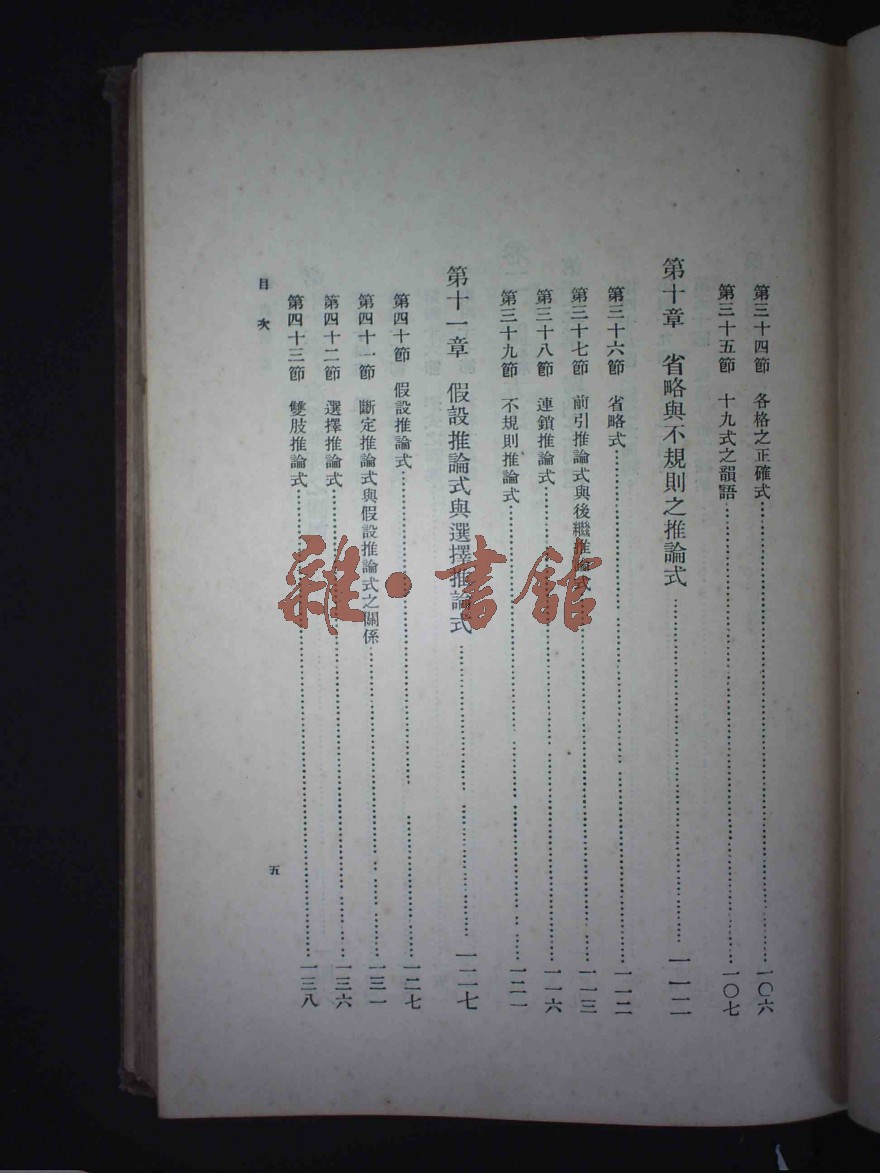 第三十四節 各格之正確式……一〇六
第三十五節 十九式之韻語……一〇七
第十章 省略與不規則之推論式……一一二
第三十六節 省略式……一一二
第三十七節 前引推論式與後繼推論式……一一三
第三十八節 連鎖推論式……一一六
第三十九節 不規則推論式……一二一
第十一章 假設推論式與選擇推論式……一二七
第四十節 假設推論式……一二七
第四十一節 斷定推論式與假設推論式之關係……一三一
第四十二節 選擇推論式……一三六
第四十三節 雙肢推論式……一三八
目次
五
雜·書館